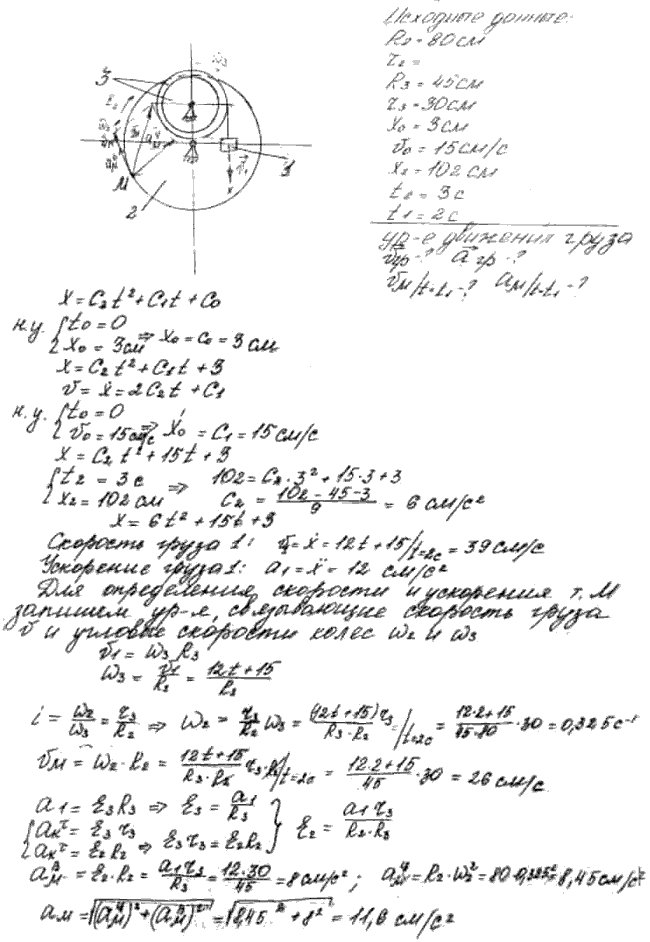 Исходные данные:
R2 = 80 см
r2 =
R3 = 45 см
r3 = 30 см
x0 = 3 см
v0 = 15 см/с
x2 = 102 см
t2 = 3 с
t1 = 2 с
ур-е движения груза
vгр - ? aгр - ?
vM/t=t1 - ? aM/t=t1 - ?
3
M
2
1
x = C2 t² + C1 t + C0
н.у. { t0 = 0
x0 = 3 см => x0 = C0 = 3 см
x = C2 t² + C1 t + 3
v = ẋ = 2C2 t + C1
н.у. { t0 = 0
v0 = 15 см/с => ẋ0 = C1 = 15 см/с
x = C2 t² + 15t + 3
{ t2 = 3 с
x2 = 102 см => 102 = C2 · 3² + 15·3 + 3
C2 = (102 - 45 - 3)/9 = 6 см/с²
x = 6t² + 15t + 3
Скорость груза 1: v1 = ẋ = 12t + 15/t=2c = 39 см/с
Ускорение груза 1: a1 = ẍ = 12 см/с²
Для определения скорости и ускорения т. M
запишем ур-я, связывающие скорость груза
v и угловые скорости колес ω2 и ω3
v1 = ω3 R3
ω3 = v1/R3 = (12t + 15)/R3
i = ω2/ω3 = r3/R2 => ω2 = r3/R2 ω3 = (12t + 15) r3/(R3 · R2) /t=2c = (12·2 + 15)/(45·80) · 30 = 0,325 с⁻¹
vM = ω2 · R2 = (12t + 15)/(R3 · R2) r3 · R2 /t=2c = (12·2 + 15)/45 · 30 = 26 см/с
a1 = ε3 R3 => ε3 = a1/R3
{ aк^τ = ε3 r3
aк^τ = ε2 R2 => ε3 r3 = ε2 R2 } ε2 = a1 r3/(R2 · R3)
aM^в = ε2 · R2 = a1 r3/R3 = 12·30/45 = 8 см/с² ; aM^ц = R2 · ω2² = 80·0,325² = 8,45 см/с²
aM = √((aM^ц)² + (aM^в)²) = √(8,45² + 8²) = 11,6 см/с²